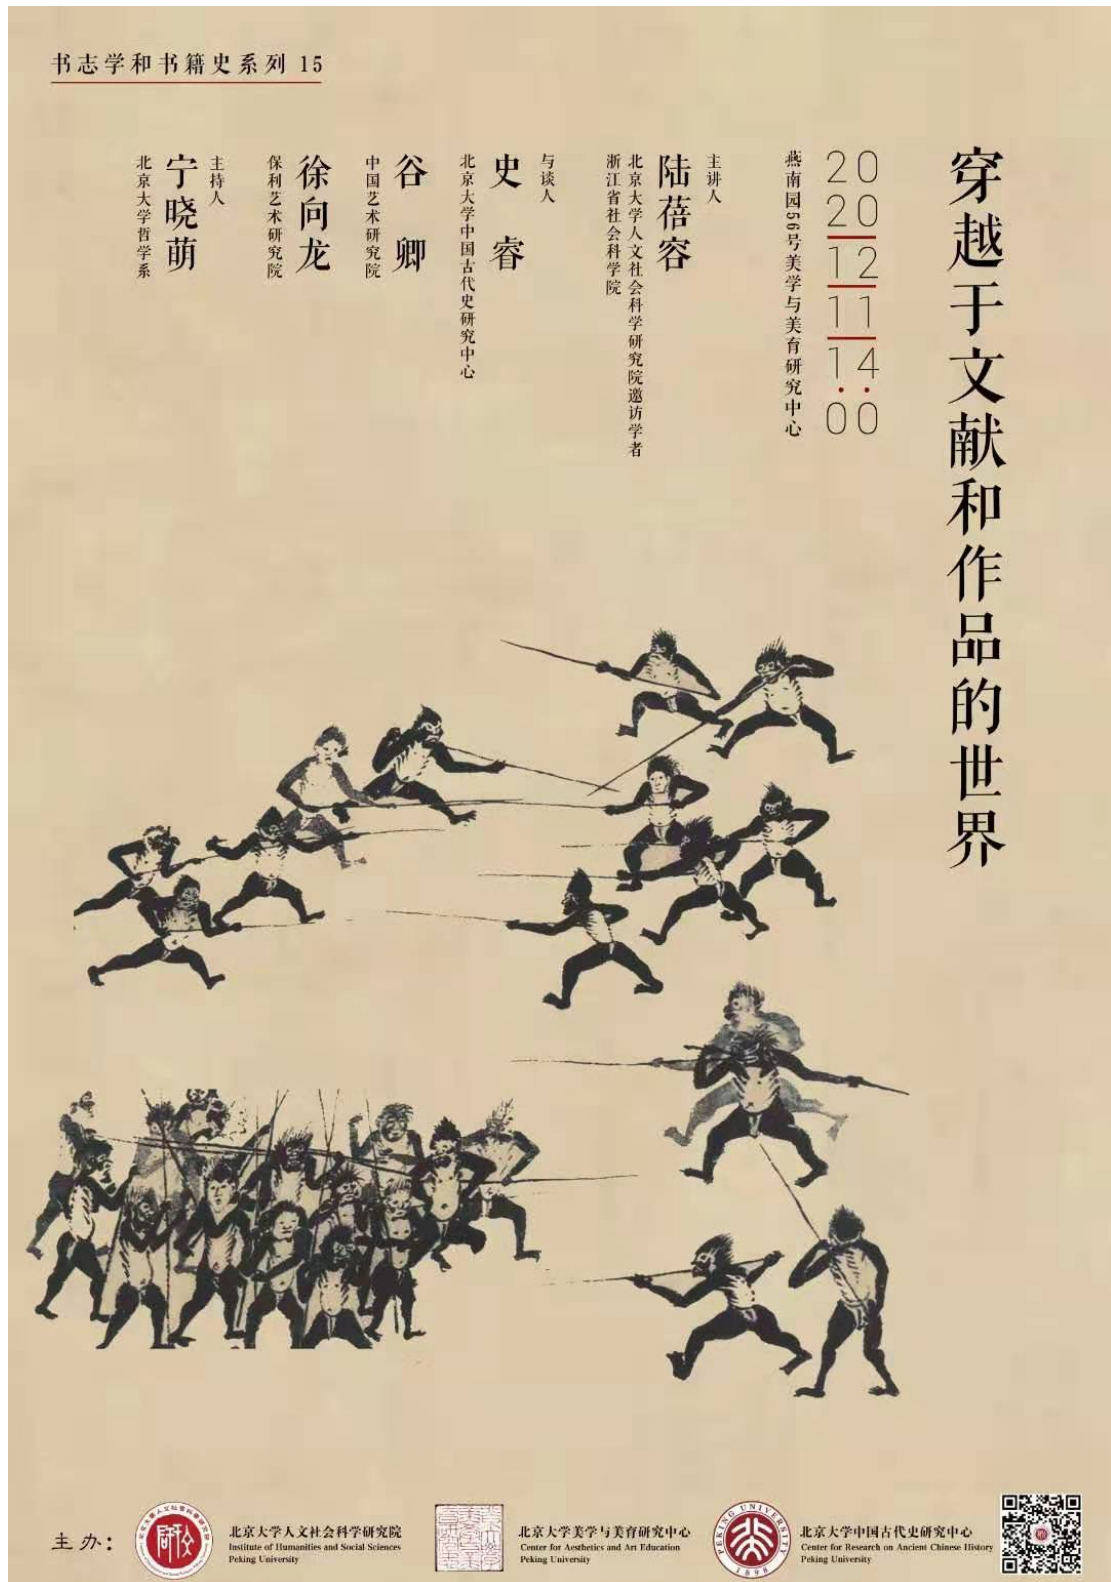 书志学和书籍史系列 15
穿越于文献和作品的世界
2020
12
11
14:00
燕南园56号美学与美育研究中心
主讲人
陆蓓容
北京大学人文社会科学研究院邀访学者
浙江省社会科学院
与谈人
史睿
北京大学中国古代史研究中心
谷卿
中国艺术研究院
徐向龙
保利艺术研究院
主持人
宁晓萌
北京大学哲学系
主办：
北京大学人文社会科学研究院
Institute of Humanities and Social Sciences
Peking University
北京大学美学与美育研究中心
Center for Aesthetics and Art Education
Peking University
PEKING UNIVERSITY
1898
北京大学中国古代史研究中心
Center for Research on Ancient Chinese History
Peking University